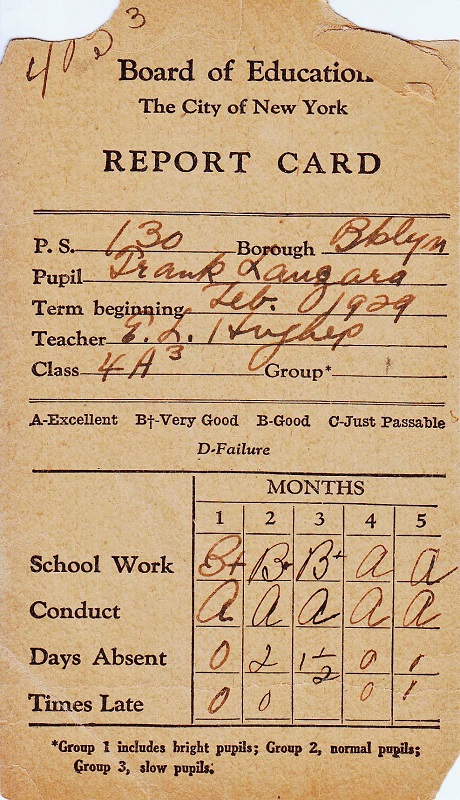 Board of Education
The City of New York
REPORT CARD
P. S. 130 Borough Bklyn
Pupil Frank Langara
Term beginning Feb. 1929
Teacher E. L. Hughes
Class 4A³ Group*
A-Excellent B†-Very Good B-Good C-Just Passable
D-Failure
MONTHS
1 2 3 4 5
School Work B+ B+ B+ A A
Conduct A A A A A
Days Absent 0 2 1 1/2 0 1
Times Late 0 0 0 1
*Group 1 includes bright pupils; Group 2, normal pupils;
Group 3, slow pupils.